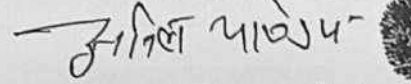 अनिल पाण्डेय